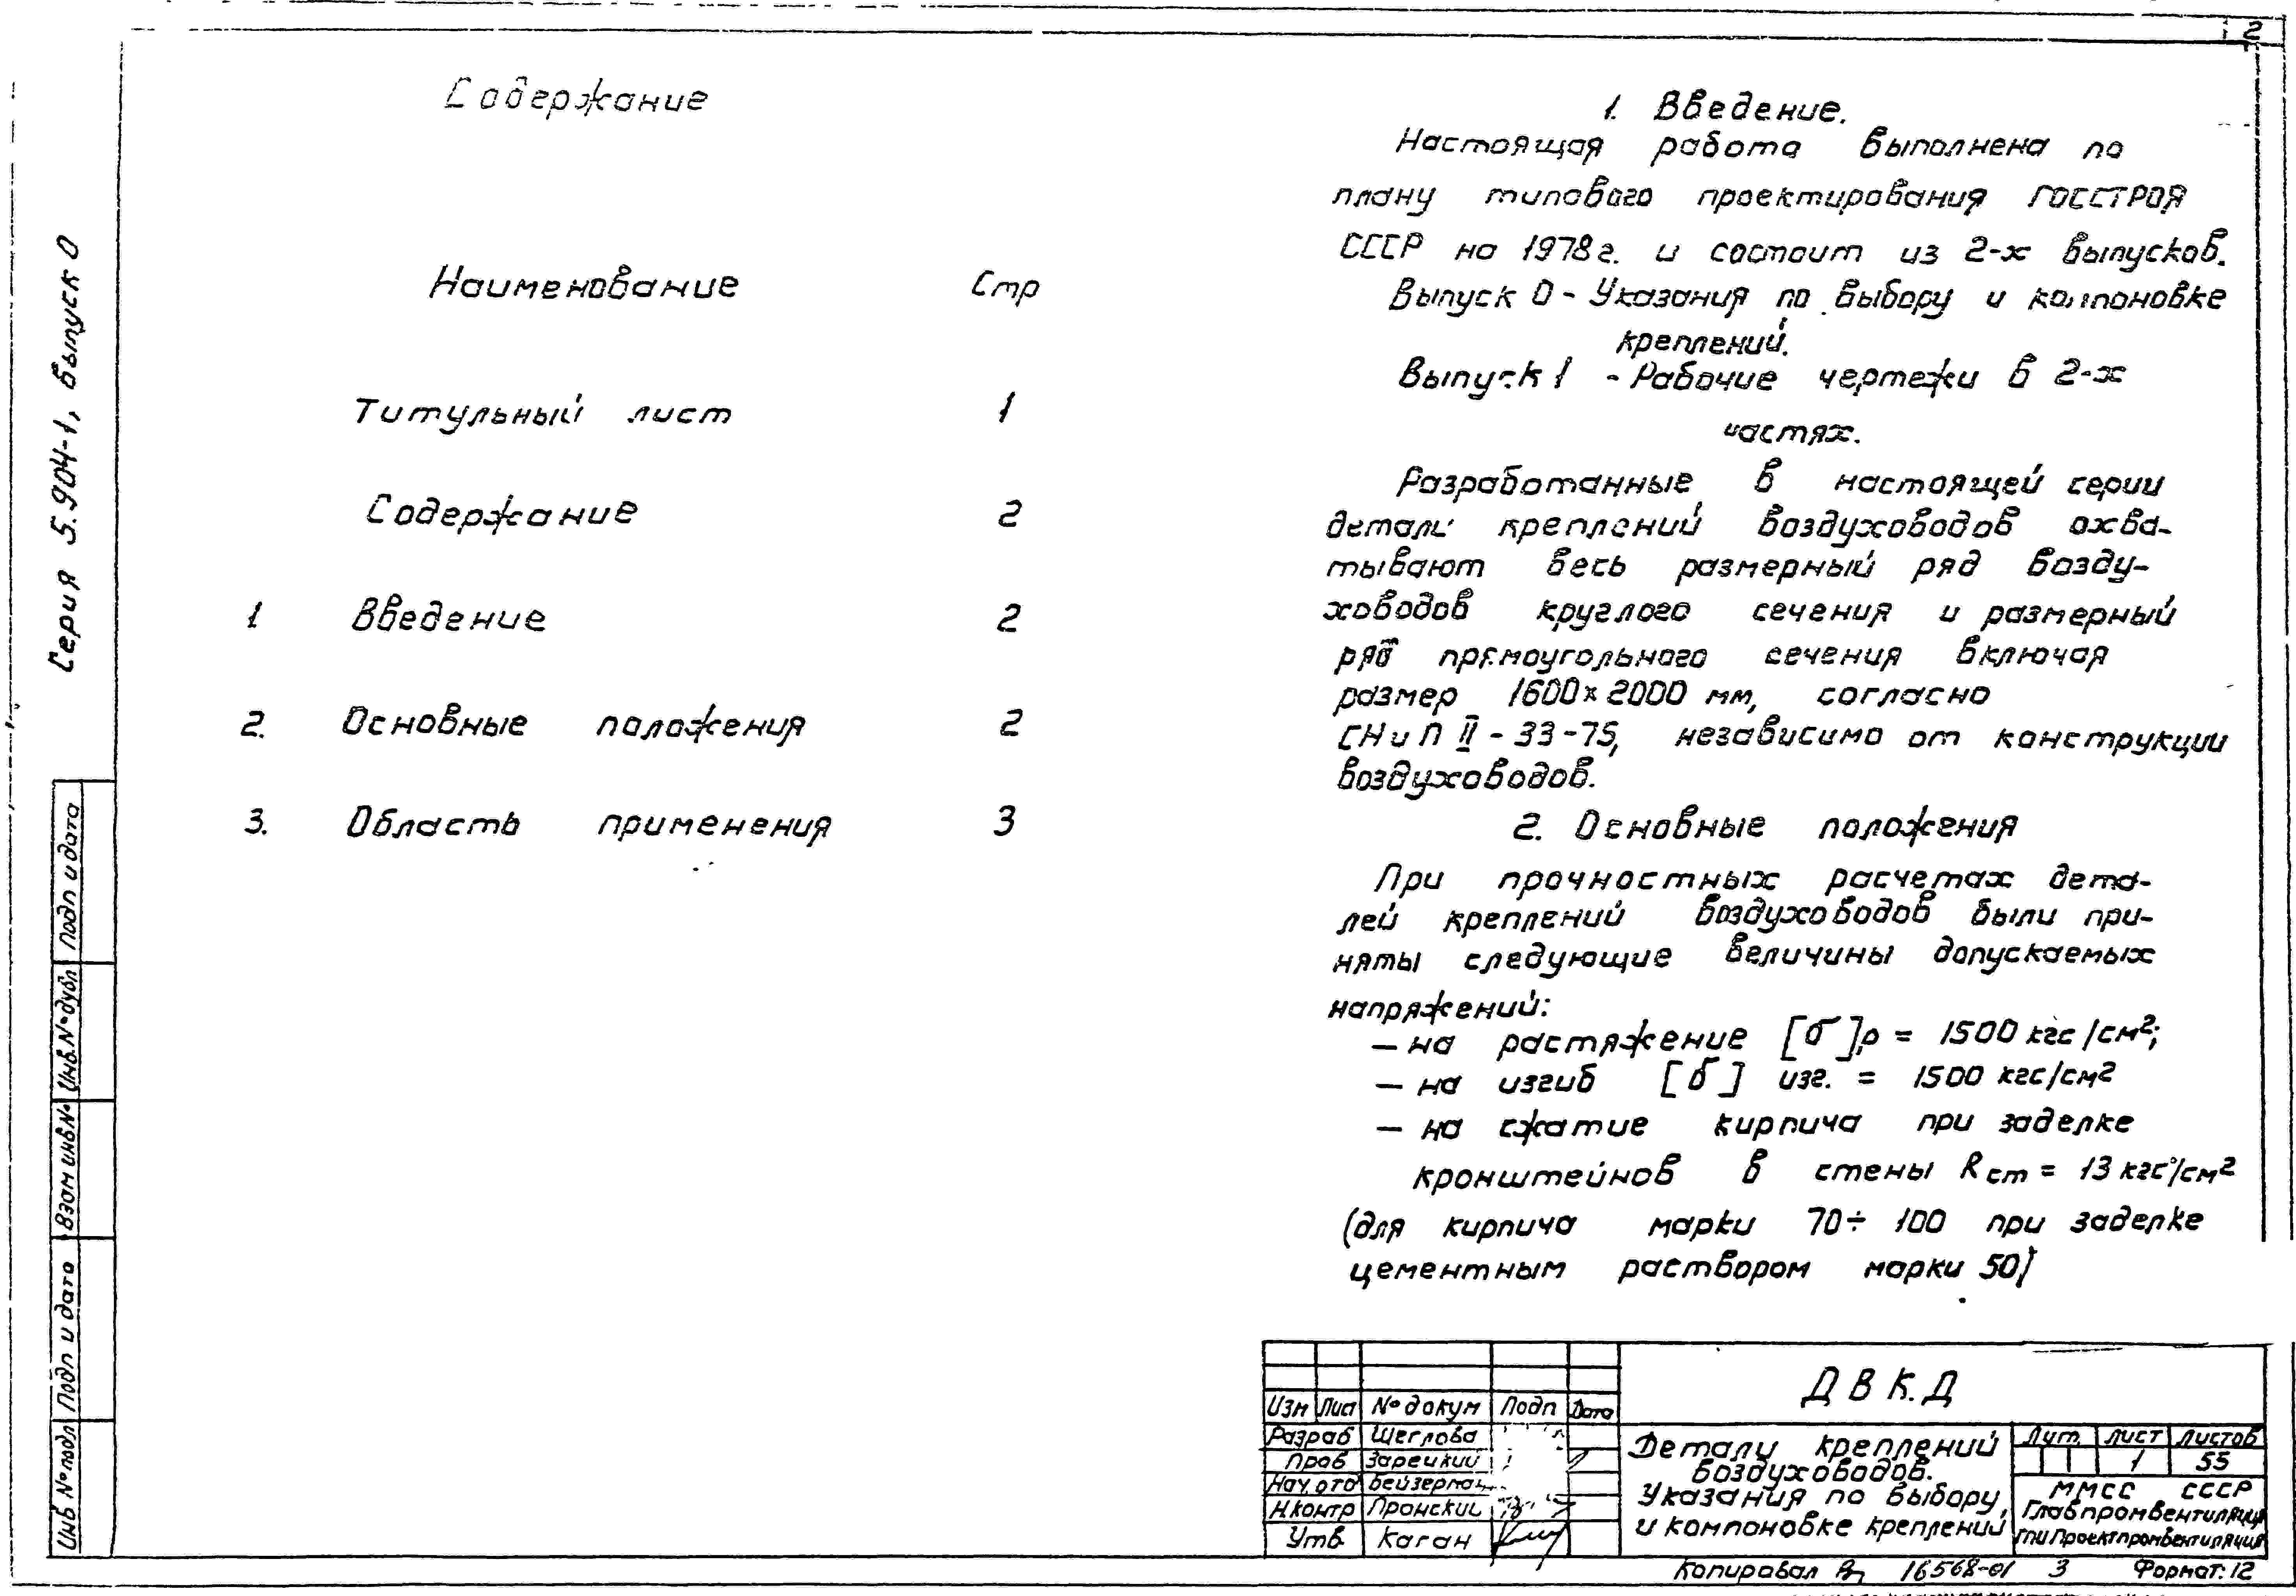 2
Содержание
Наименование Стр
Титульный лист 1
Содержание 2
1 Введение 2
2. Основные положения 2
3. Область применения 3
1. Введение.
Настоящая работа выполнена по
плану типового проектирования ГОССТРОЯ
СССР на 1978г. и состоит из 2-х выпусков.
Выпуск 0 - Указания по выбору и компоновке
креплений.
Выпуск 1 - Рабочие чертежи в 2-х
частях.
Разработанные в настоящей серии
детали креплений воздуховодов охва-
тывают весь размерный ряд возду-
ховодов круглого сечения и размерный
ряд прямоугольного сечения включая
размер 1600×2000 мм, согласно
СНиП II - 33-75, независимо от конструкции
воздуховодов.
2. Основные положения
При прочностных расчетах дета-
лей креплений воздуховодов были при-
няты следующие величины допускаемых
напряжений:
— на растяжение [σ]р = 1500 кгс/см²;
— на изгиб [σ] изг. = 1500 кгс/см²
— на сжатие кирпича при заделке
кронштейнов в стены Rст = 13 кгс/см²
(для кирпича марки 70÷100 при заделке
цементным раствором марки 50)
Серия 5.904-1, выпуск 0
Подп и дата
Инв.№ дубл
Взам инв №
Подп и дата
Инв № подл
ДВК.Д
Изм Лист № докум Подп Дата
Разраб Щеглова
Пров Зарецкий
Нач. отд Бейзерман
Н.контр Пронский
Утв. Каган
Деталу креплений
воздуховодов.
Указания по выбору,
и компоновке креплений
Лит. Лист Листов
1 55
ММСС СССР
Главпромвентиляция
ГПИ Проектпромвентиляция
Копировал 16568-01 3 Формат: 12